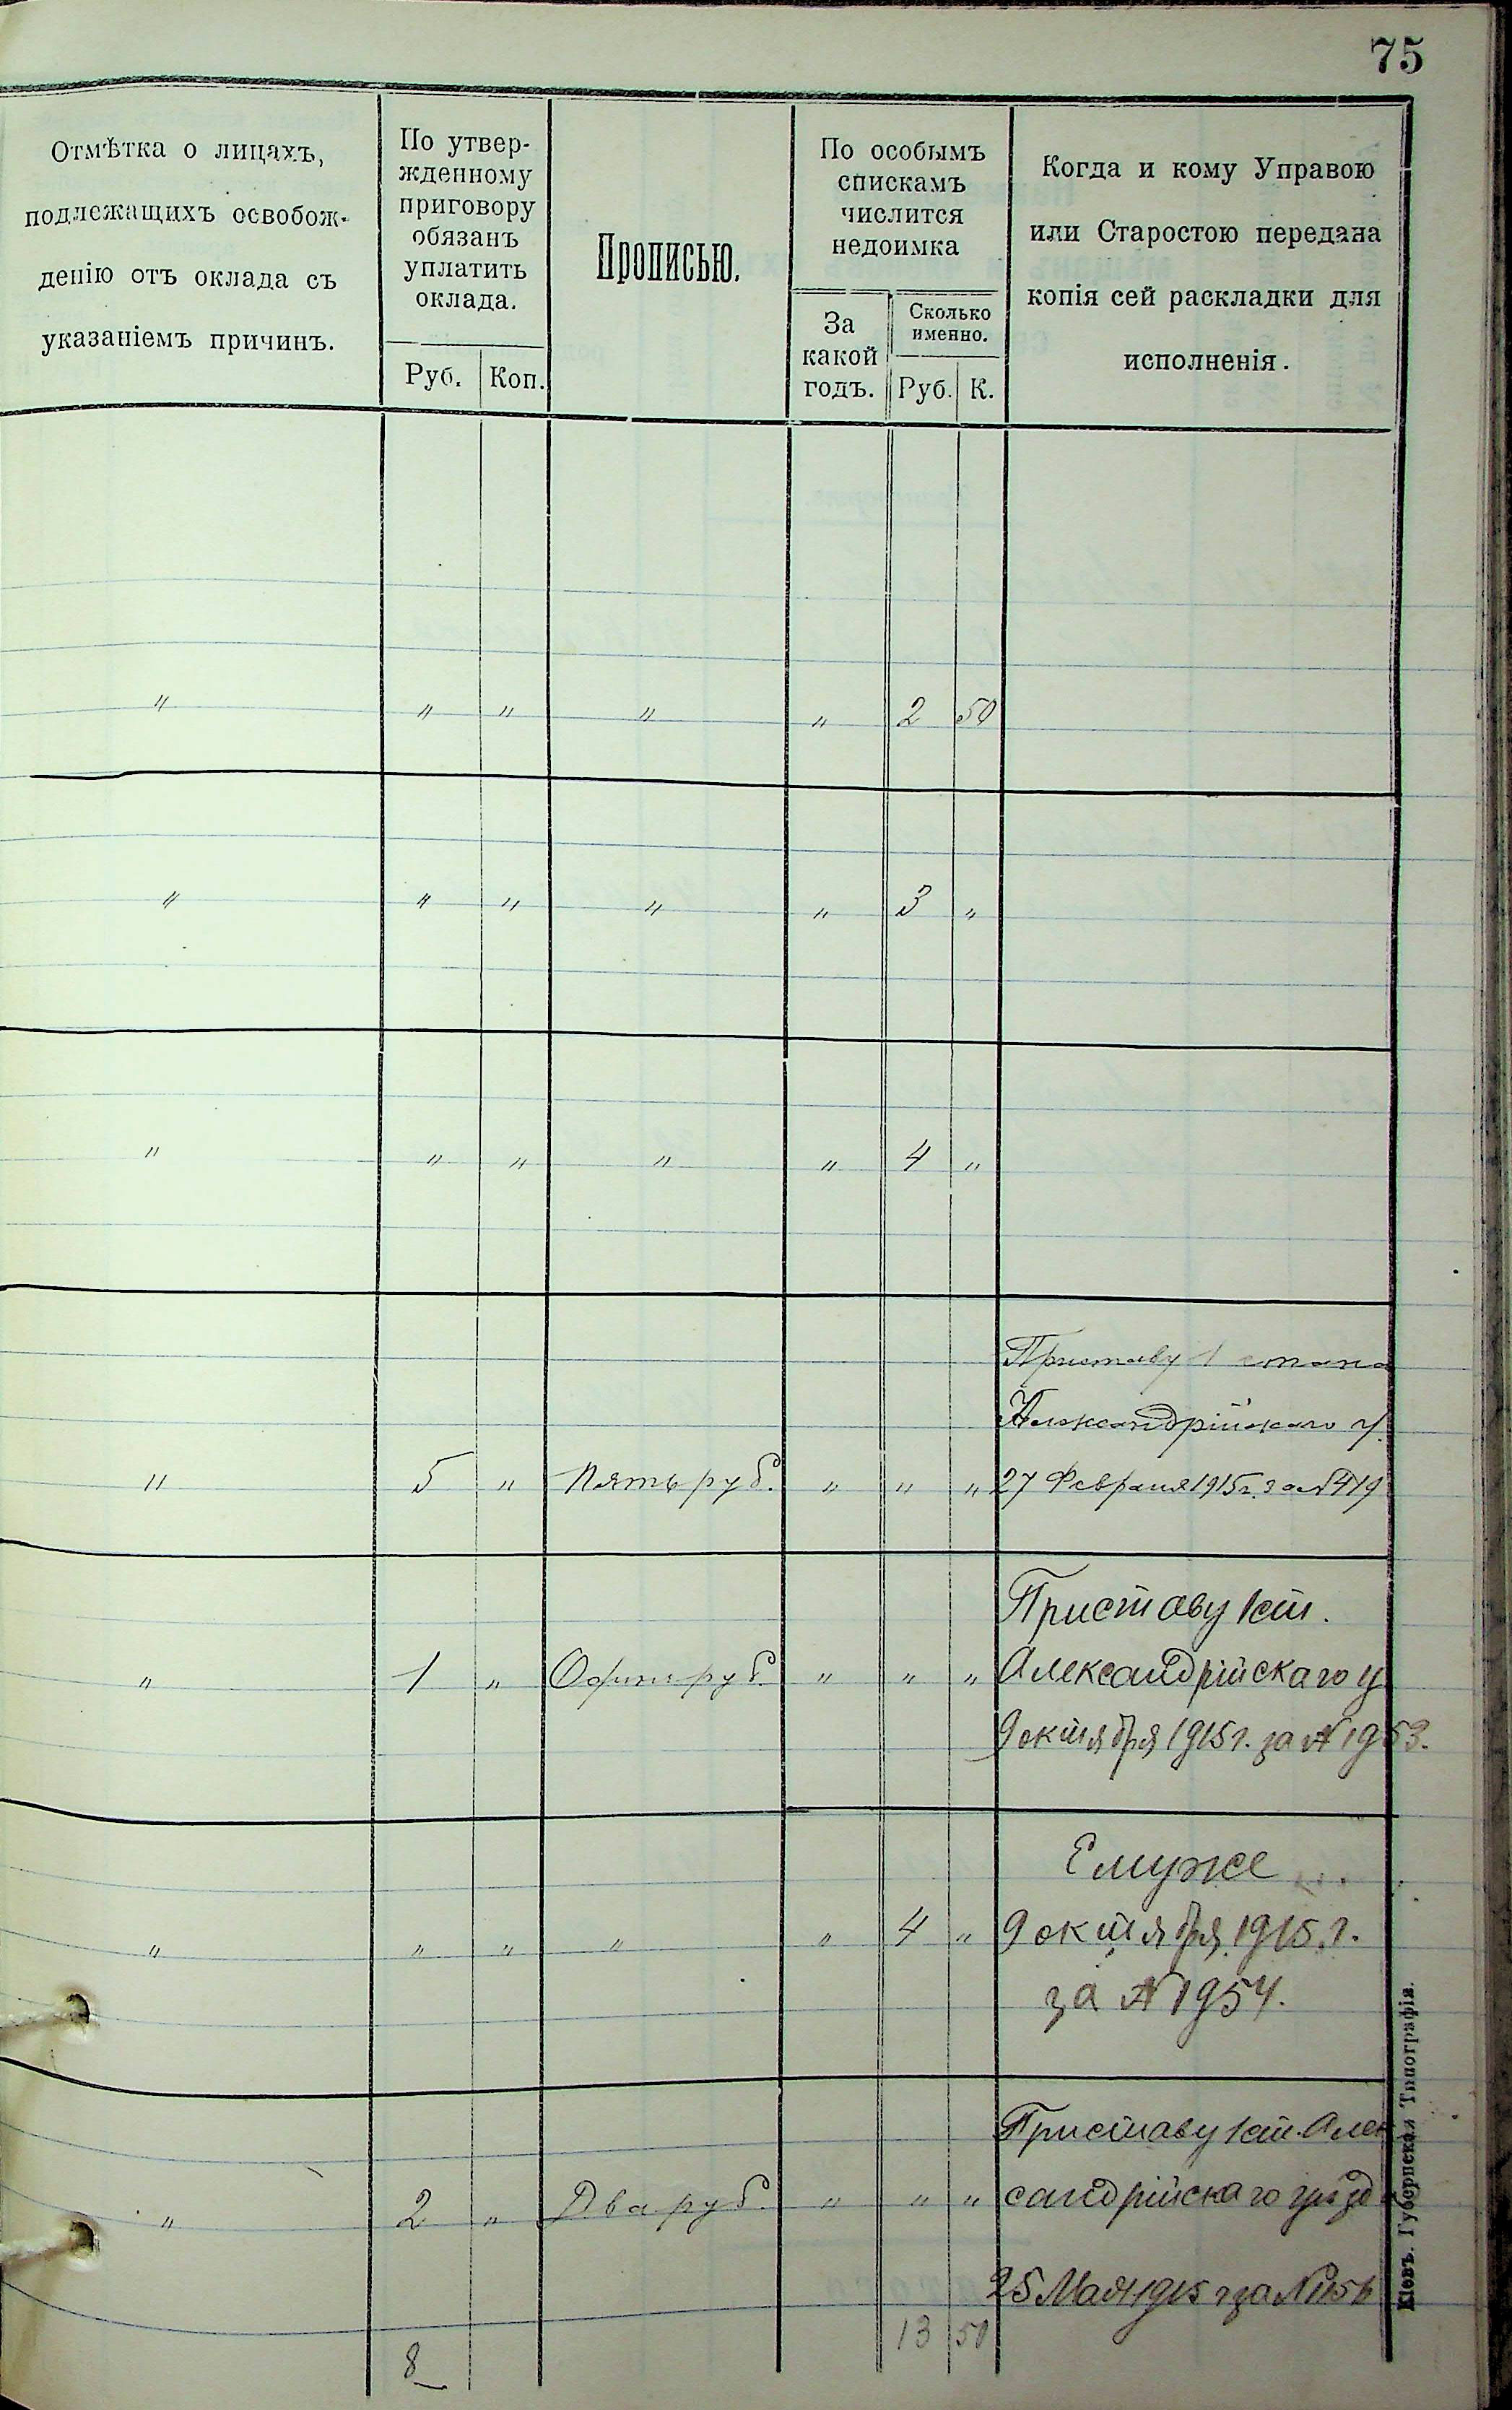 75
Отмѣтка о лицахъ,
подлежащихъ освобож-
денію отъ оклада съ
указаніемъ причинъ.
По утвер-
жденному
приговору
обязанъ
уплатить
оклада.
Руб. Коп.
Прописью.
По особымъ
спискамъ
числится
недоимка
За
какой
годъ.
Сколько
именно.
Руб. К.
Когда и кому Управою
или Старостою передана
копія сей раскладки для
исполненія.
" " " " " 2 50
" " " " " 3 "
" " " " " 4 "
Приставу 1 стана
Александрійскаго у.
" 5 " Пять руб. " " " 27 Февраля 1915 г. за № 479
Приставу 1 ст.
" 1 " Одинъ руб. " " " Александрійскаго у.
9 октября 1915 г. за № 1953.
Ему же
" " " " " 4 " 9 октября 1915 г.
за № 1954.
Приставу 1 ст. Алек
" 2 " Два руб. " " " сандрійскаго уѣзд
25 Мая 1915 г за № 1156
8 13 50
Кіевъ. Губернская Типографія.